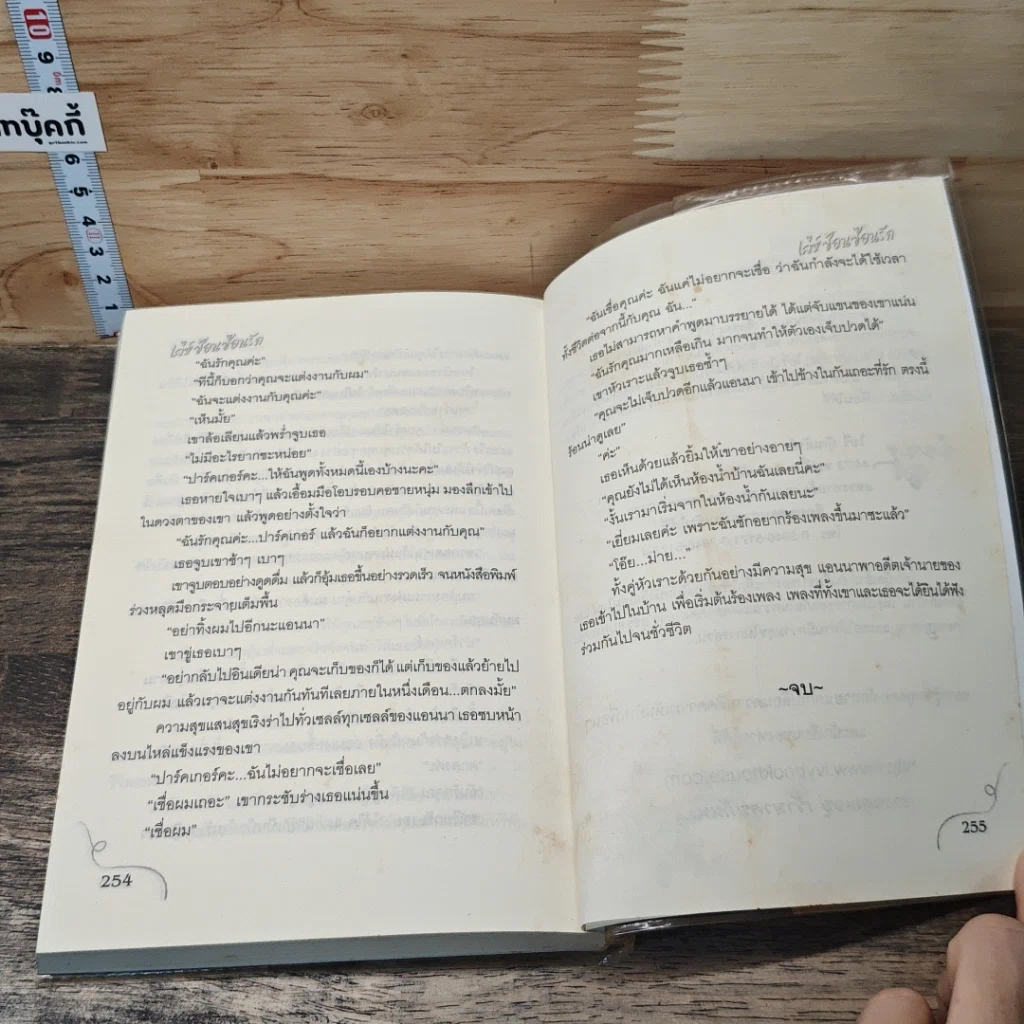 10
9
8
ทบุ๊คกี้
6
5
4
3
2
1
"ฉันรักคุณค่ะ"
"ทีนี้ก็บอกว่าคุณจะแต่งงานกับผม"
"ฉันจะแต่งงานกับคุณค่ะ"
"เห็นมั้ย"
เขาล้อเลียนแล้วพร่ำจูบเธอ
"ไม่มีอะไรยากซะหน่อย"
"ปาร์คเกอร์คะ...ให้ฉันพูดทั้งหมดนี้เองบ้างนะคะ"
เธอหายใจเบาๆ แล้วเอื้อมมือโอบรอบคอชายหนุ่ม มองลึกเข้าไป
ในดวงตาของเขา แล้วพูดอย่างตั้งใจว่า
"ฉันรักคุณค่ะ...ปาร์คเกอร์ แล้วฉันก็อยากแต่งงานกับคุณ"
เธอจูบเขาช้าๆ เบาๆ
เขาจูบตอบอย่างดูดดื่ม แล้วก็อุ้มเธอขึ้นอย่างรวดเร็ว จนหนังสือพิมพ์
ร่วงหลุดมือกระจายเต็มพื้น
"อย่าทิ้งผมไปอีกนะแอนนา"
เขาขู่เธอเบาๆ
"อย่ากลับไปอินเดียน่า คุณจะเก็บของก็ได้ แต่เก็บของแล้วย้ายไป
อยู่กับผม แล้วเราจะแต่งงานกันทันทีเลยภายในหนึ่งเดือน...ตกลงมั้ย"
ความสุขแสนสุขเริงร่าไปทั่วเซลล์ทุกเซลล์ของแอนนา เธอซบหน้า
ลงบนไหล่แข็งแรงของเขา
"ปาร์คเกอร์คะ...ฉันไม่อยากจะเชื่อเลย"
"เชื่อผมเถอะ" เขากระชับร่างเธอแน่นขึ้น
"เชื่อผม"
254
"ฉันเชื่อคุณค่ะ ฉันแค่ไม่อยากจะเชื่อ ว่าฉันกำลังจะได้ใช้เวลา
ทั้งชีวิตต่อจากนี้กับคุณ ฉัน..."
เธอไม่สามารถหาคำพูดมาบรรยายได้ ได้แต่จับแขนของเขาแน่น
"ฉันรักคุณมากเหลือเกิน มากจนทำให้ตัวเองเจ็บปวดได้"
เขาหัวเราะแล้วจูบเธอซ้ำๆ
"คุณจะไม่เจ็บปวดอีกแล้วแอนนา เข้าไปข้างในกันเถอะที่รัก ตรงนี้
ร้อนน่าดูเลย"
"ค่ะ"
เธอเห็นด้วยแล้วยิ้มให้เขาอย่างอายๆ
"คุณยังไม่ได้เห็นห้องน้ำบ้านฉันเลยนี่คะ"
"งั้นเรามาเริ่มจากในห้องน้ำกันเลยนะ"
"เยี่ยมเลยค่ะ เพราะฉันชักอยากร้องเพลงขึ้นมาซะแล้ว"
"โอ๊ย...ม่าย..."
ทั้งคู่หัวเราะด้วยกันอย่างมีความสุข แอนนาพาอดีตเจ้านายของ
เธอเข้าไปในบ้าน เพื่อเริ่มต้นร้องเพลง เพลงที่ทั้งเขาและเธอจะได้ยินได้ฟัง
ร่วมกันไปจนชั่วชีวิต
~จบ~
255